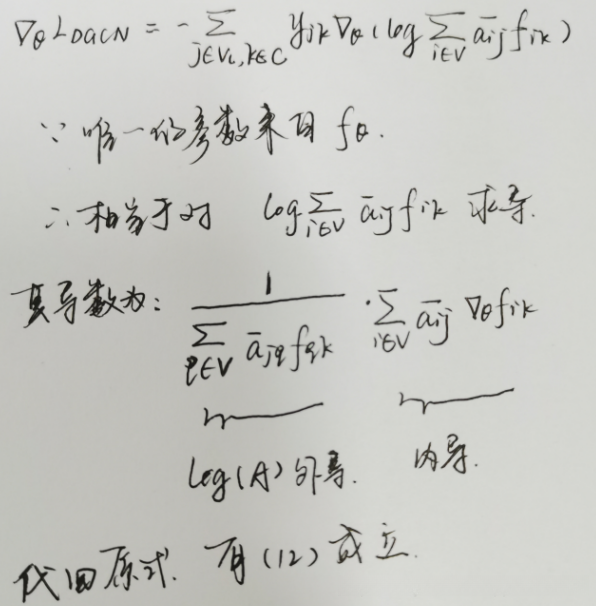 ∇θ L_DGCN = -∑_{j∈V_L,k∈C} y_{jk} ∇θ (log ∑_{i∈V} ā_{ij} f_{ik})
∵ 唯一的参数来自 fθ.
∴ 相当于对 log ∑_{i∈V} ā_{ij} f_{ik} 求导.
其导数为: 1/(∑_{q∈V} ā_{jq} f_{qk}) · ∑_{i∈V} ā_{ij} ∇θ f_{ik}
log(A) 外导. 内导.
代回原式. 有 (12) 成立.